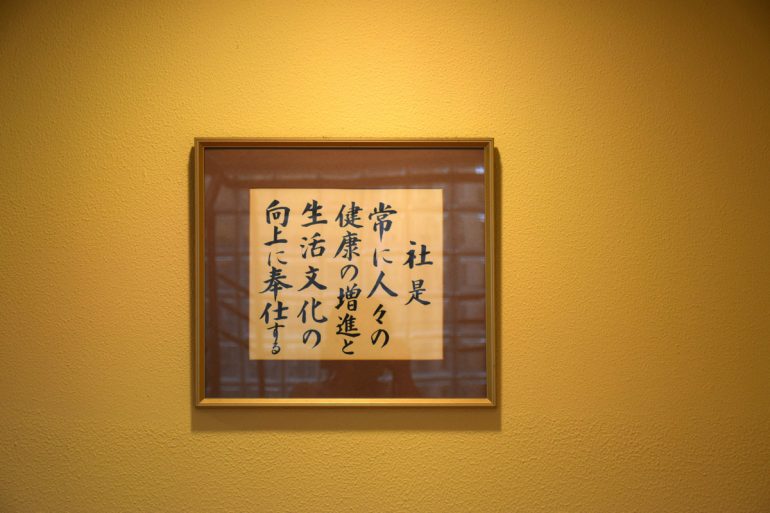 社是
常に人々の
健康の増進と
生活文化の
向上に奉仕する